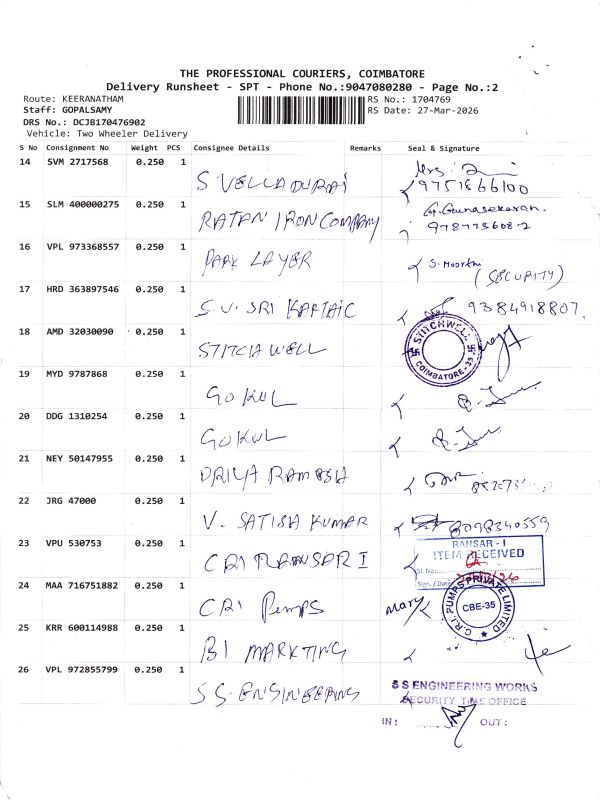 THE PROFESSIONAL COURIERS, COIMBATORE
Delivery Runsheet - SPT - Phone No.:9047080280 - Page No.:2
Route: KEERANATHAM RS No.: 1704769
Staff: GOPALSAMY RS Date: 27-Mar-2026
DRS No.: DCJB170476902
Vehicle: Two Wheeler Delivery
S No Consignment No Weight PCS Consignee Details Remarks Seal & Signature
14 SVM 2717568 0.250 1 S. VELLADURAI 9751866100
15 SLM 400000275 0.250 1 RATAN IRON COMPANY G. Gunasekaran.
16 VPL 973368557 0.250 1 PARK LAYER S. Moorthi (SECURITY)
17 HRD 363897546 0.250 1 S.V. SRI 9384918807.
18 AMD 32030090 0.250 1 STITCH WELL STITCHWELL COIMBATORE-35
19 MYD 9787868 0.250 1 GOKUL
20 DDG 1310254 0.250 1 GOKUL
21 NEY 50147955 0.250 1 PRIYA RAMESH
22 JRG 47000 0.250 1 V. SATISH KUMAR 8098340559
23 VPU 530753 0.250 1 CRI RANSAR I RANSAR - I
ITEM RECEIVED
Sl. No:
Sign. / Date
24 MAA 716751882 0.250 1 CRI Pumps Mary C.R.I. PUMPS PRIVATE LIMITED CBE-35
25 KRR 600114988 0.250 1 BI MARKTING
26 VPL 972855799 0.250 1 S S. ENGINEERING S S ENGINEERING WORKS
SECURITY TIME OFFICE
IN : OUT :